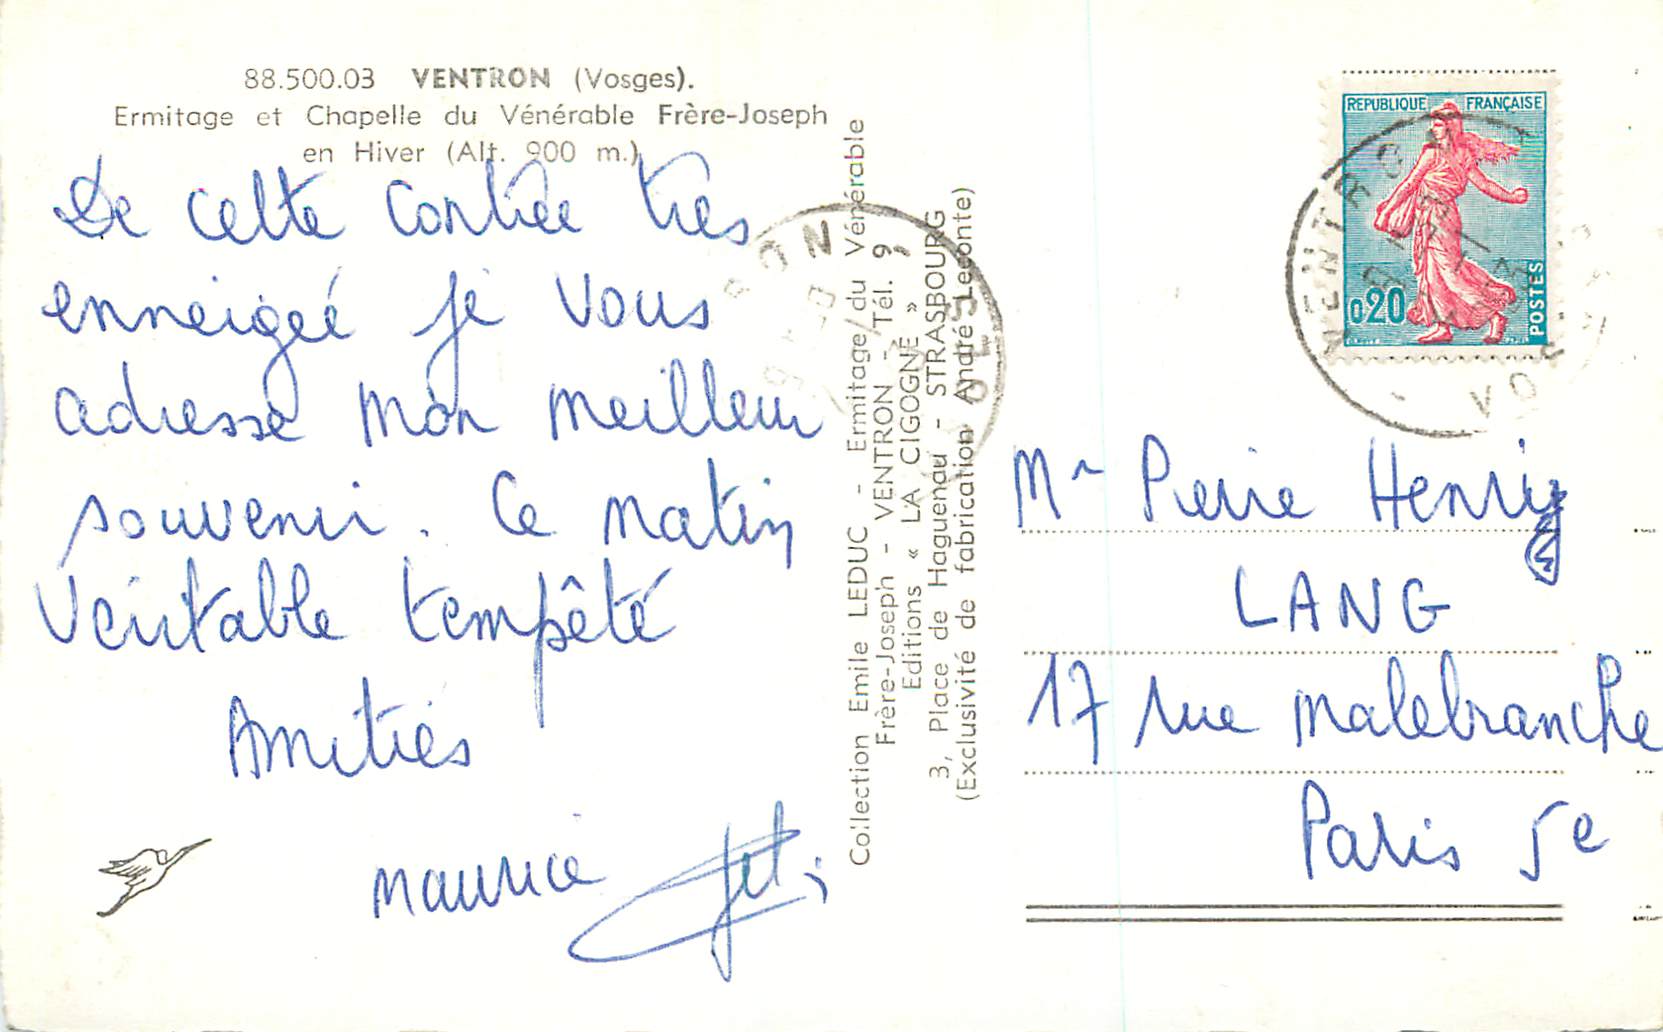 88.500.03 VENTRON (Vosges).
Ermitage et Chapelle du Vénérable Frère-Joseph
en Hiver (Alt. 900 m.)
De cette contrée très
enneigée je vous
adresse mon meilleur
souvenir. Ce matin
véritable tempête
Amitiés
Maurice
Collection Emile LEDUC - Ermitage du Vénérable
Frère-Joseph - VENTRON - Tél. 9,
Editions « LA CIGOGNE »
3, Place de Haguenau - STRASBOURG
(Exclusivité de fabrication André Leconte)
REPUBLIQUE FRANÇAISE
0,20
POSTES
VENTRON
Mr Pierre Henry
LANG
17 rue Malebranche
Paris 5e